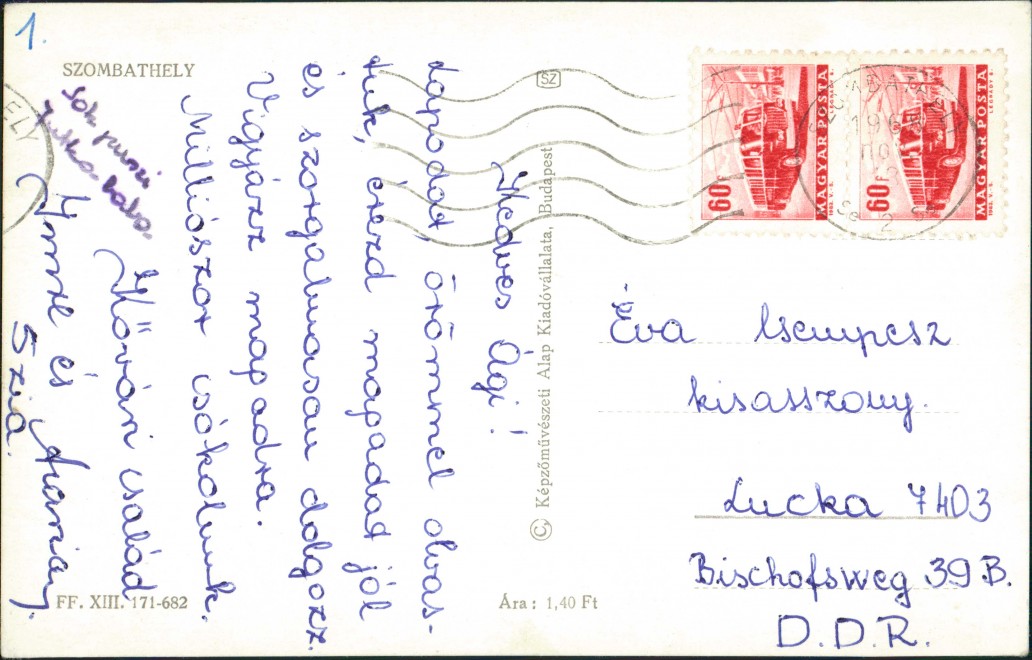 1.
SZOMBATHELY
Kedves Ági!
Lapodat, örömmel olvas-
tuk, érezd magadat jól
és szorgalmasan dolgozz.
Vigyázz magadra.
Milliószor csókolunk.
Kővári család
Imre és Mariann.
Szia.
Sok puszi
© Képzőművészeti Alap Kiadóvállalata, Budapest
FF. XIII. 171-682
Ára: 1,40 Ft
SZ
60f
MAGYAR POSTA
60f
MAGYAR POSTA
ELY
Éva Csempesz
kisasszony.
Lucka 7403
Bischofsweg 39 B.
D.D.R.